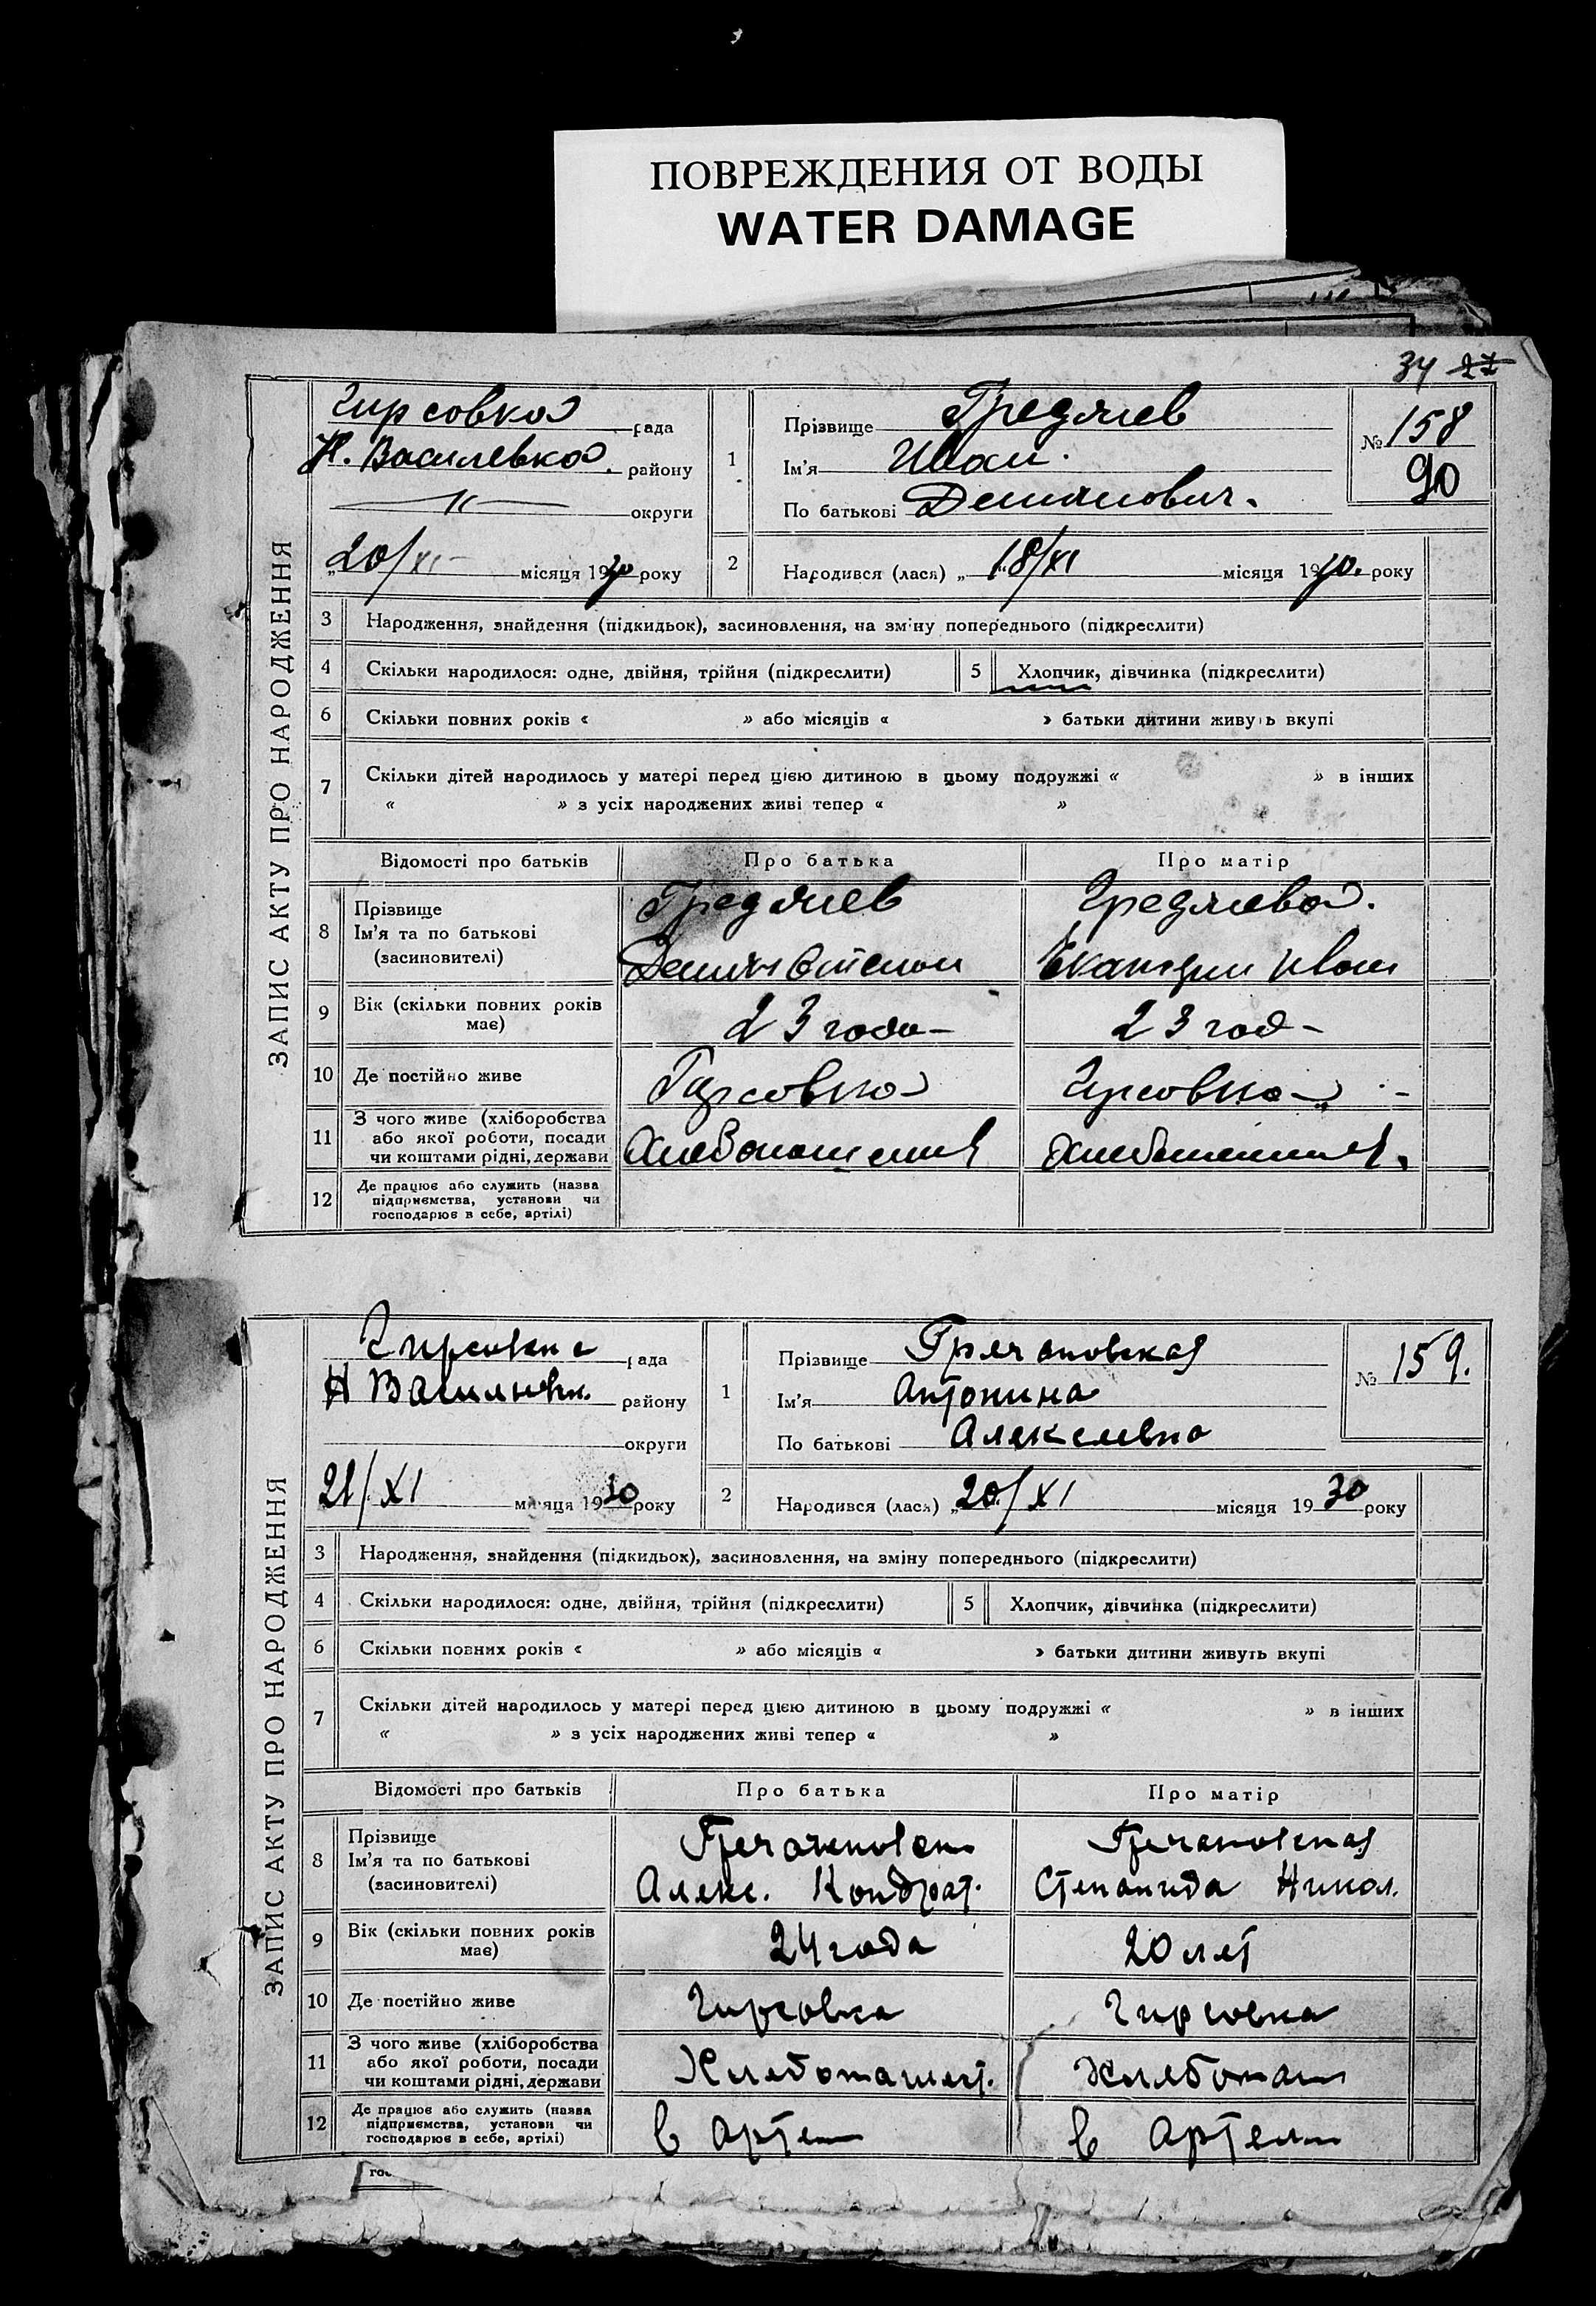 ПОВРЕЖДЕНИЯ ОТ ВОДЫ
WATER DAMAGE
34 27
ЗАПИС АКТУ ПРО НАРОДЖЕННЯ
Гирсовка рада
Н. Василевка. району
—"— округи
„20/XI— місяця 1930 року
1 Прізвище Гредяев
Ім'я Иван.
По батькові Демянович.
№ 158
90
2 Народився (лася) „ 18/XI місяця 1930. року
3 Народження, знайдення (підкидьок), засиновлення, на зміну попереднього (підкреслити)
4 Скільки народилося: одне, двійня, трійня (підкреслити) 5 Хлопчик, дівчинка (підкреслити)
6 Скільки повних років « » або місяців « » батьки дитини живуть вкупі
7 Скільки дітей народилось у матері перед цією дитиною в цьому подружжі « » в інших
« » з усіх народжених живі тепер « »
Відомості про батьків Про батька Про матір
8 Прізвище
Ім'я та по батькові
(засиновителі)
Гредяев Гредяева.
Демян Екатерин Иван
9 Вік (скільки повних років
має)
23 года— 23 год—
10 Де постійно живе Гирсовка Гирсовка
11 З чого живе (хліборобства
або якої роботи, посади
чи коштами рідні, держави
12 Де працює або служить (назва
підприємства, установи чи
господарює в себе, артілі)
ЗАПИС АКТУ ПРО НАРОДЖЕННЯ
Гирсовка рада
Н Васильевк. району
округи
21/XI місяця 1930 року
1 Прізвище Гречановская
Ім'я Антонина
По батькові Алексеевна
№ 159.
2 Народився (лася) „20/XI місяця 1930 року
3 Народження, знайдення (підкидьок), засиновлення, на зміну попереднього (підкреслити)
4 Скільки народилося: одне, двійня, трійня (підкреслити) 5 Хлопчик, дівчинка (підкреслити)
6 Скільки повних років « » або місяців « » батьки дитини живуть вкупі
7 Скільки дітей народилось у матері перед цією дитиною в цьому подружжі « » в інших
« » з усіх народжених живі тепер « »
Відомості про батьків Про батька Про матір
8 Прізвище
Ім'я та по батькові
(засиновителі)
Гречановская
Алекс. Кондрат. Степанида Никол.
9 Вік (скільки повних років
має)
24 года 20 лет
10 Де постійно живе Гирсовка Гирсовка
11 З чого живе (хліборобства
або якої роботи, посади
чи коштами рідні, держави
Хлебопашест. Хлебопаш
12 Де працює або служить (назва
підприємства, установи чи
господарює в себе, артілі)
в артели в артели